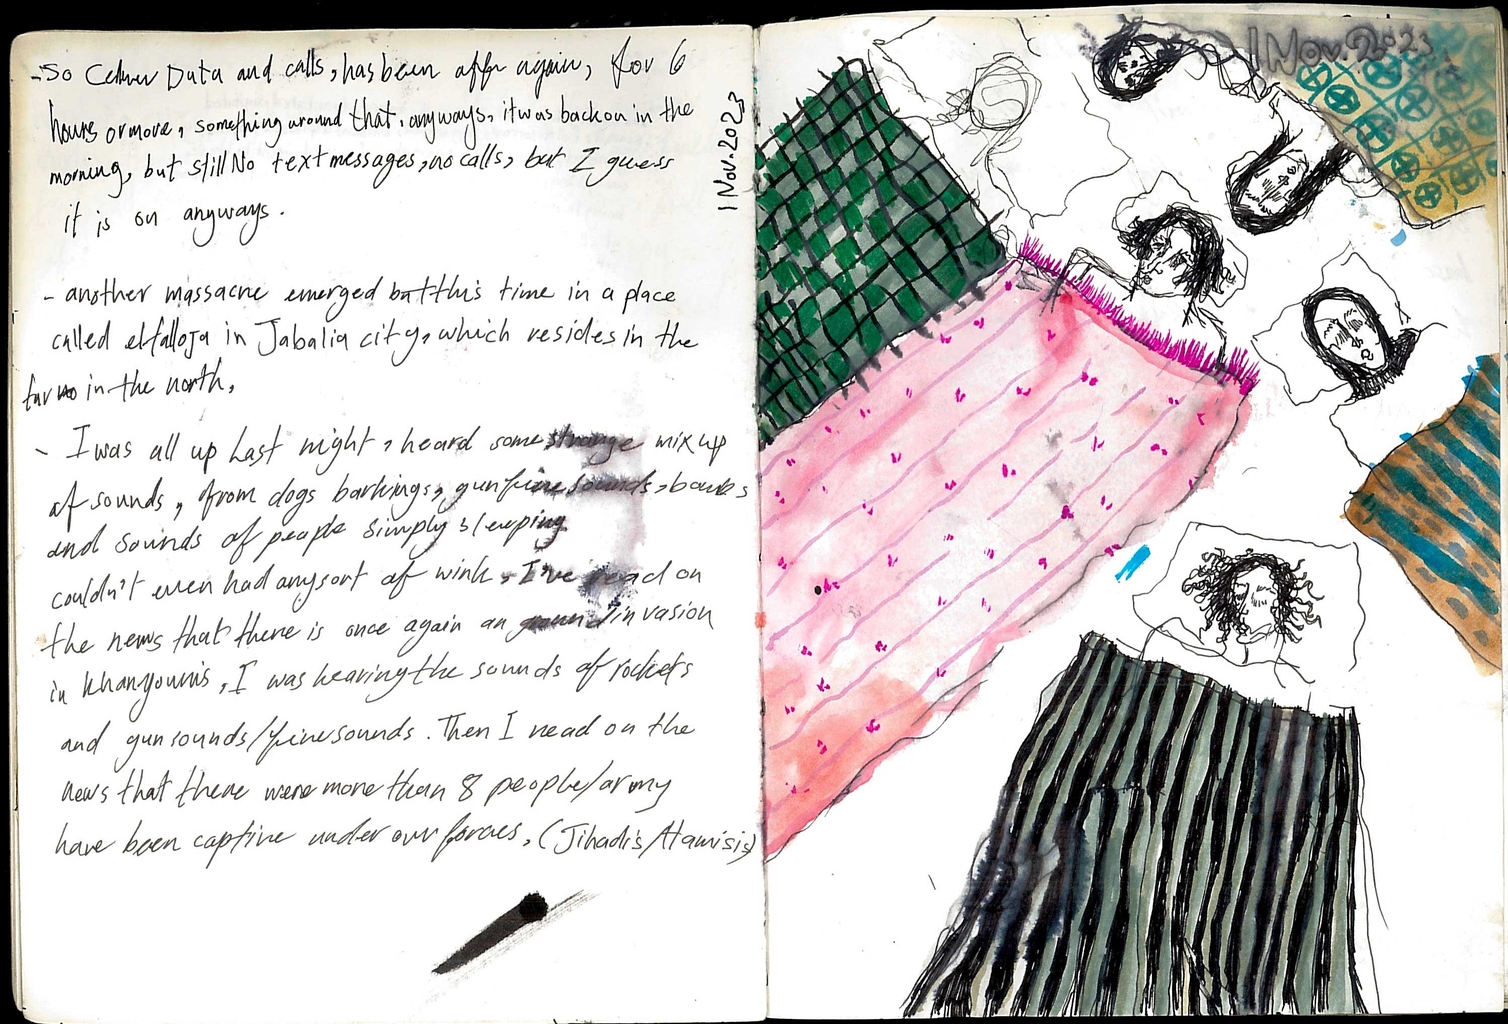 - So Celluer Data and calls, has been off again, for 6
hours or more, something around that, anyways, it was back on in the
morning, but still No text messages, no calls, but I guess
it is on anyways.
- another massacre emerged but this time in a place
called elfalloja in Jabalia city, which resides in the
far in the north.
- I was all up last night, heard some strange mix up
of sounds, from dogs barkings, gunfire sounds, bombs
and sounds of people simply sleeping
couldn't even had anysort of wink. I've read on
the news that there is once again an ground invasion
in khanyounis, I was hearing the sounds of rockets
and gun sounds/fire sounds. Then I read on the
news that there were more than 8 people/army
have been captive under our forces. (Jihadis/Hamisis)
1 Nov. 2023
1 Nov. 2023